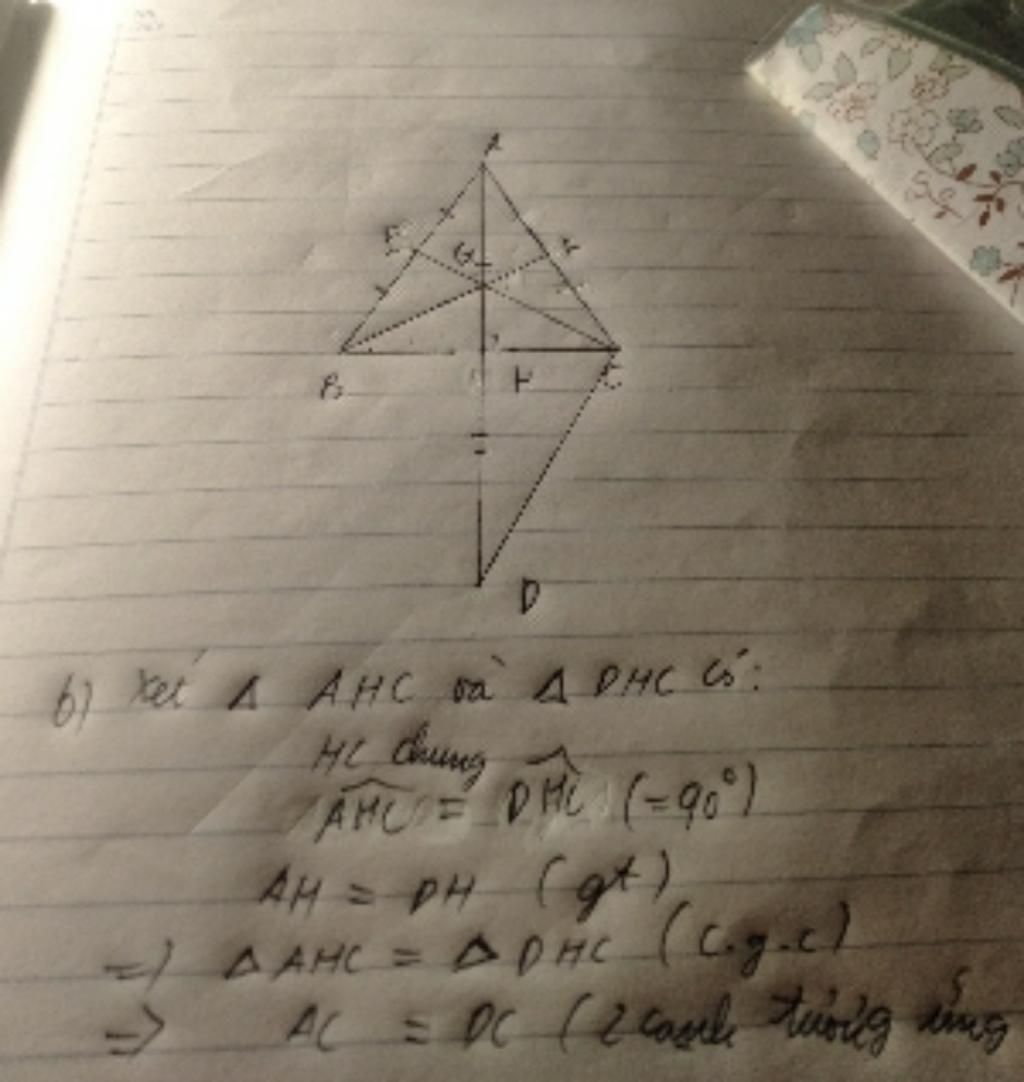 A
E
G
B
H
C
D
b) Xét Δ AHC và Δ DHC có:
HC chung
AHC = DHC (=90°)
AH = DH (gt)
=) Δ AHC = Δ DHC (c.g.c)
=> AC = DC (2 cạnh tương ứng